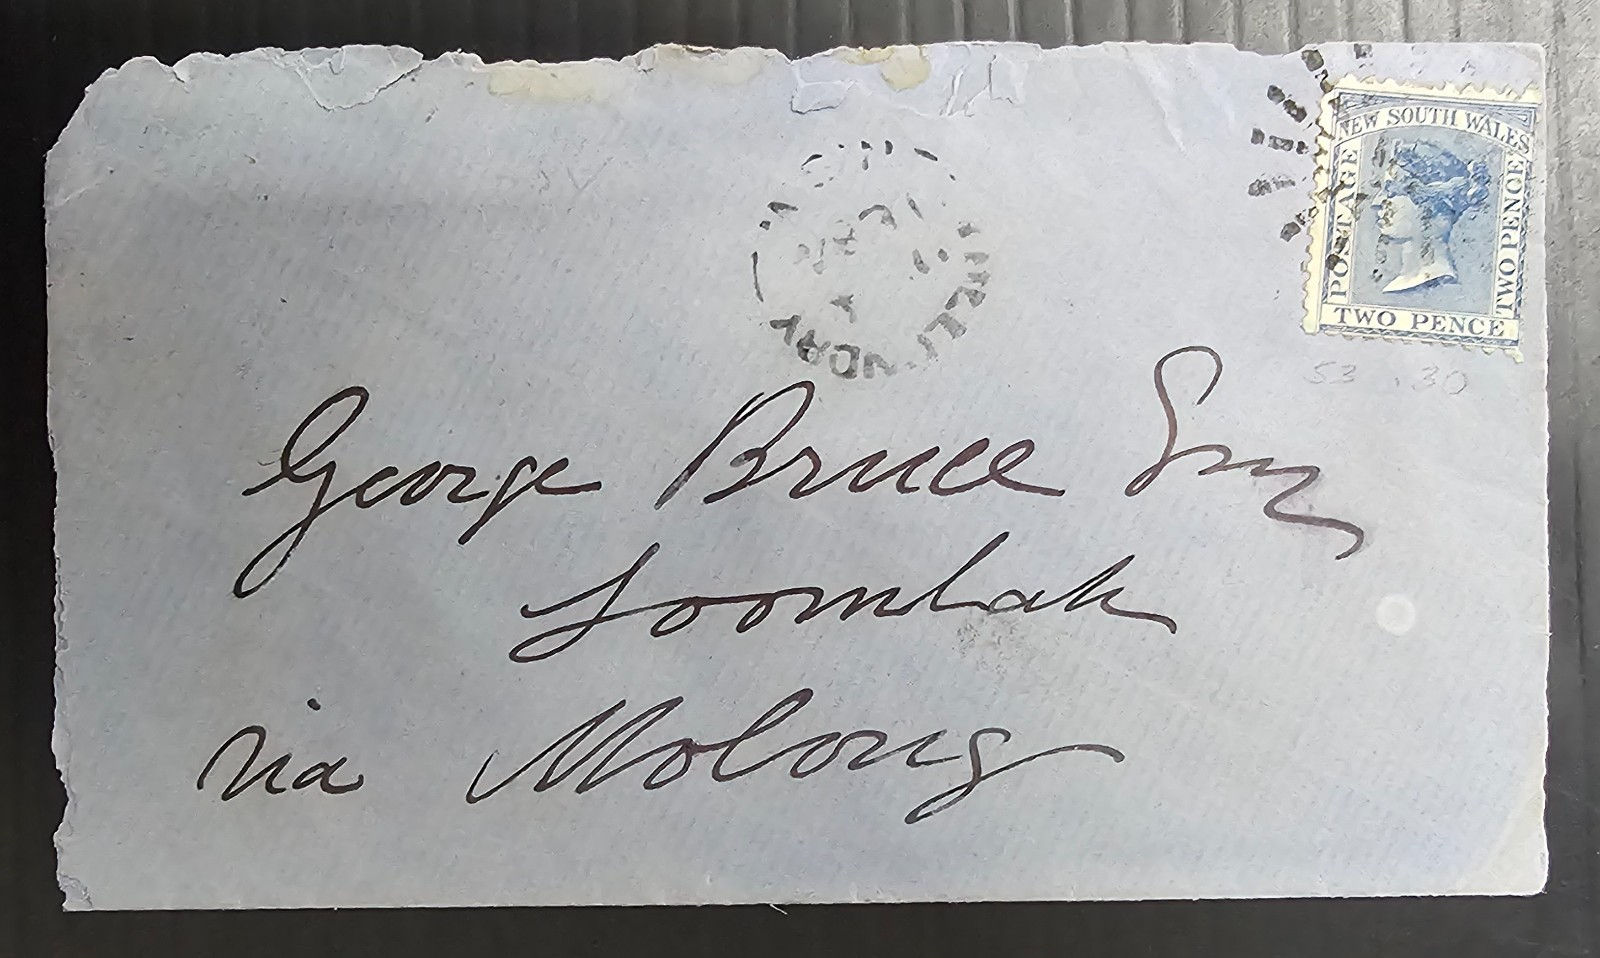 NEW SOUTH WALES
POSTAGE
TWO PENCE
TWO PENCE
53 .30
George Bruce
Loombah
via Molong